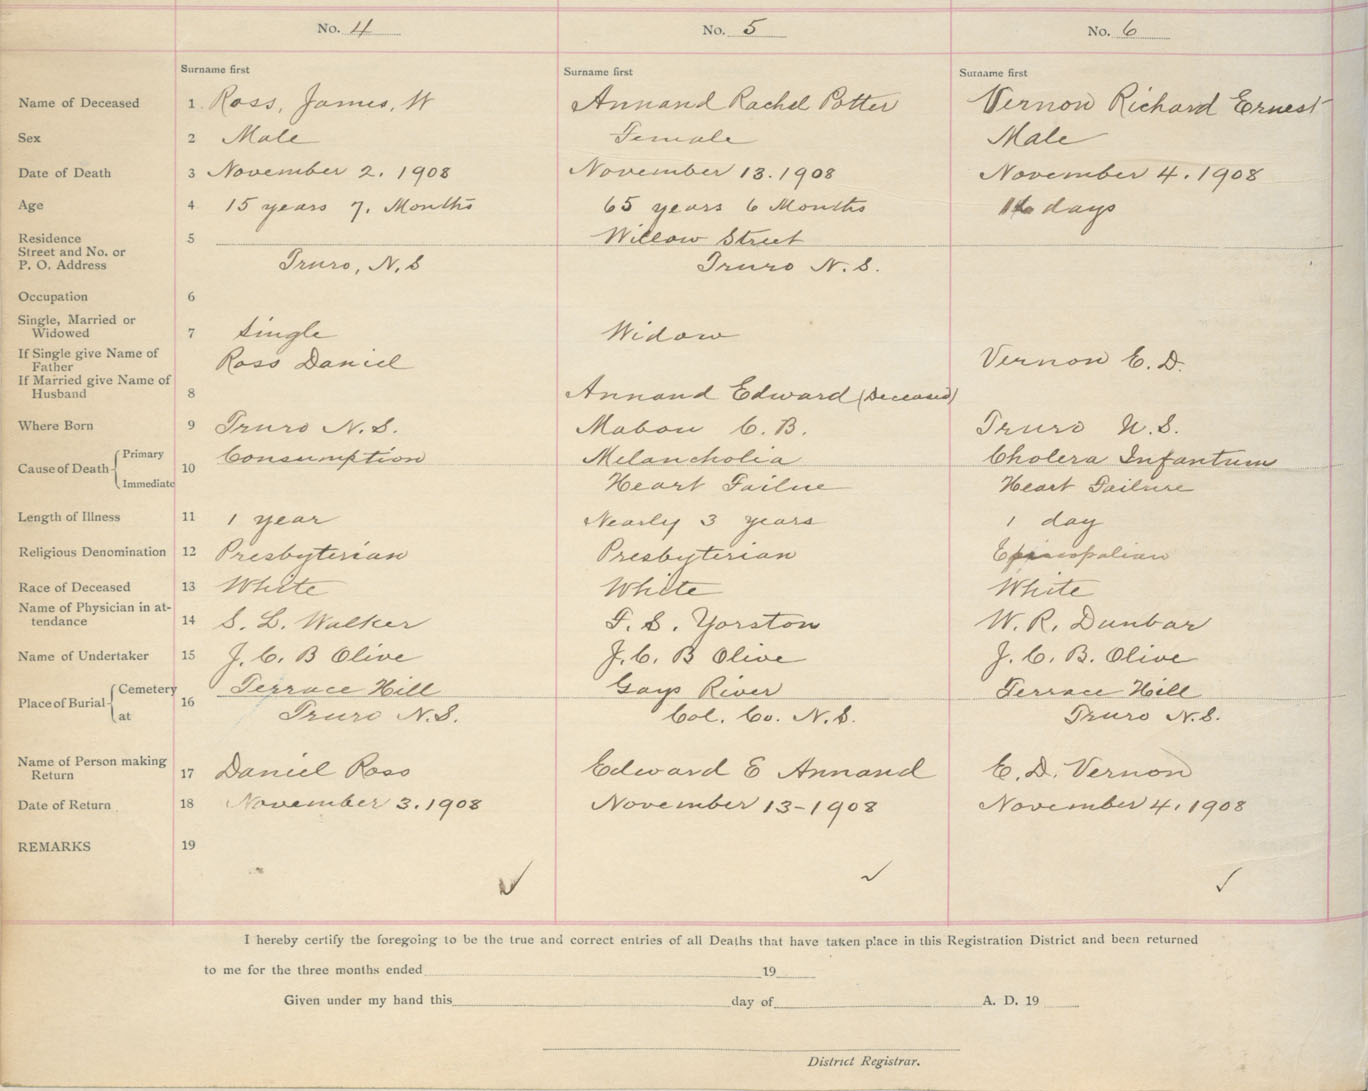 No. 4 No. 5 No. 6
Surname first Surname first Surname first
Name of Deceased 1 Ross, James, W Annand Rachel Potter Vernon Richard Ernest
Sex 2 Male Female Male
Date of Death 3 November 2, 1908 November 13. 1908 November 4. 1908
Age 4 15 years 7. Months 65 years 6 Months days
Residence 5 Willow Street
Street and No. or
P. O. Address Truro, N.S Truro N.S.
Occupation 6
Single, Married or
Widowed 7 Single Widow
If Single give Name of
Father Ross Daniel Vernon E. D.
If Married give Name of
Husband 8 Annand Edward (Deceased)
Where Born 9 Truro N.S. Mabou C.B. Truro N.S.
Cause of Death Primary Consumption Melancholia Cholera Infantum
10
Immediate Heart Failue Heart Failure
Length of Illness 11 1 year Nearly 3 years 1 day
Religious Denomination 12 Presbyterian Presbyterian Episcopalian
Race of Deceased 13 White White White
Name of Physician in at-
tendance 14 S. L. Walker F. S. Yorston W. R. Dunbar
Name of Undertaker 15 J. C. B Olive J. C. B Olive J. C. B. Olive
Place of Burial Cemetery Terrace Hill Gays River Terrace Hill
16
at Truro N.S. Col. Co. N.S. Truro N.S.
Name of Person making
Return 17 Daniel Ross Edward E Annand E. D. Vernon
Date of Return 18 November 3, 1908 November 13-1908 November 4, 1908
REMARKS 19
I hereby certify the foregoing to be the true and correct entries of all Deaths that have taken place in this Registration District and been returned
to me for the three months ended 19
Given under my hand this day of A. D. 19
District Registrar.